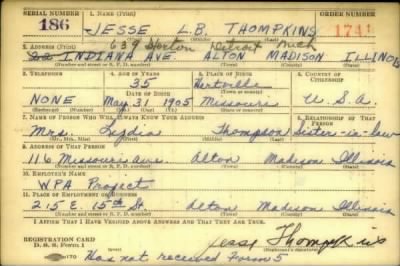 SERIAL NUMBER 1. NAME (Print) 174
186 JESSE L.B. THOMPKINS
639 Horton Detroit Mich
2. ADDRESS (Print)
22 INDIANA AVE. ALTON MADISON ILLINOIS
(Number and street or R. F. D. number) (Town) (County) (State)
3. TELEPHONE 4. AGE IN YEARS 5. PLACE OF BIRTH 6. COUNTRY OF CITIZENSHIP
35
DATE OF BIRTH (Town or county)
NONE May 31 1905 Missouri U.S.A.
(Exchange) (No.) (Mo.) (Day) (Yr.) (State or country)
7. NAME OF PERSON WHO WILL ALWAYS KNOW YOUR ADDRESS 8. RELATIONSHIP OF THAT PERSON
Mrs. Lydia Thompson Sister-in-law
(Mr., Mrs., Miss) (First) (Middle) (Last)
9. ADDRESS OF THAT PERSON
116 Missouri Ave. Alton Madison Illinois
(Number and street or R. F. D. number) (Town) (County) (State)
10. EMPLOYER'S NAME
WPA Project
11. PLACE OF EMPLOYMENT OR BUSINESS
215 E. 15th St Alton Madison Illinois
(Number and street or R. F. D. number) (Town) (County) (State)
I AFFIRM THAT I HAVE VERIFIED ABOVE ANSWERS AND THAT THEY ARE TRUE.
REGISTRATION CARD Jess Thompkins
D. S. S. Form 1 (Registrant's signature)
Has not received Form 5